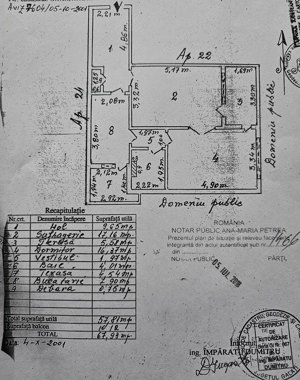 Aviz 7604/05-10-2001
2,21 m.
1
4,86 m.
Ap. 22
5,17 m.
1,69 m.
Ap. 24
2,08 m.
3,32 m.
2
3
3,30 m.
Domeniu public
3,80 m.
8
1,97 m.
5
4
3,34 m.
2,12 m.
7
6
2,92 m.
2,22 m.
4,90 m.
Domeniu public
Recapitulație
Nr.crt. Denumire încăpere Suprafață utilă
1 Hol 9,65 mp.
2 Sufragerie 17,16 mp.
3 Terasă 5,58 mp.
4 Dormitor
5 Vestibul 1,97 mp.
6 Baie 4,01 mp.
7 Terasă 4,54 mp.
8 Bucătărie 7,90 mp.
9 Debara 0,75 mp.
Total suprafață utilă 57,81 mp.
Suprafață balcon 10,18
TOTAL 67,99 mp.
Data: 4-X-2001
ROMÂNIA
NOTAR PUBLIC ANA-MARIA PETREA
Prezentul plan de situație și releveu face parte
integrantă din actul autentificat sub nr. 1486
din
NOTAR PUBLIC 05. IUL. 2019 PÂRȚI,
Întocmit
ing. ÎMPĂRATU DUMITRU
CERTIFICAT
DE
AUTORIZARE
ing. ÎMPĂRATU
DUMITRU